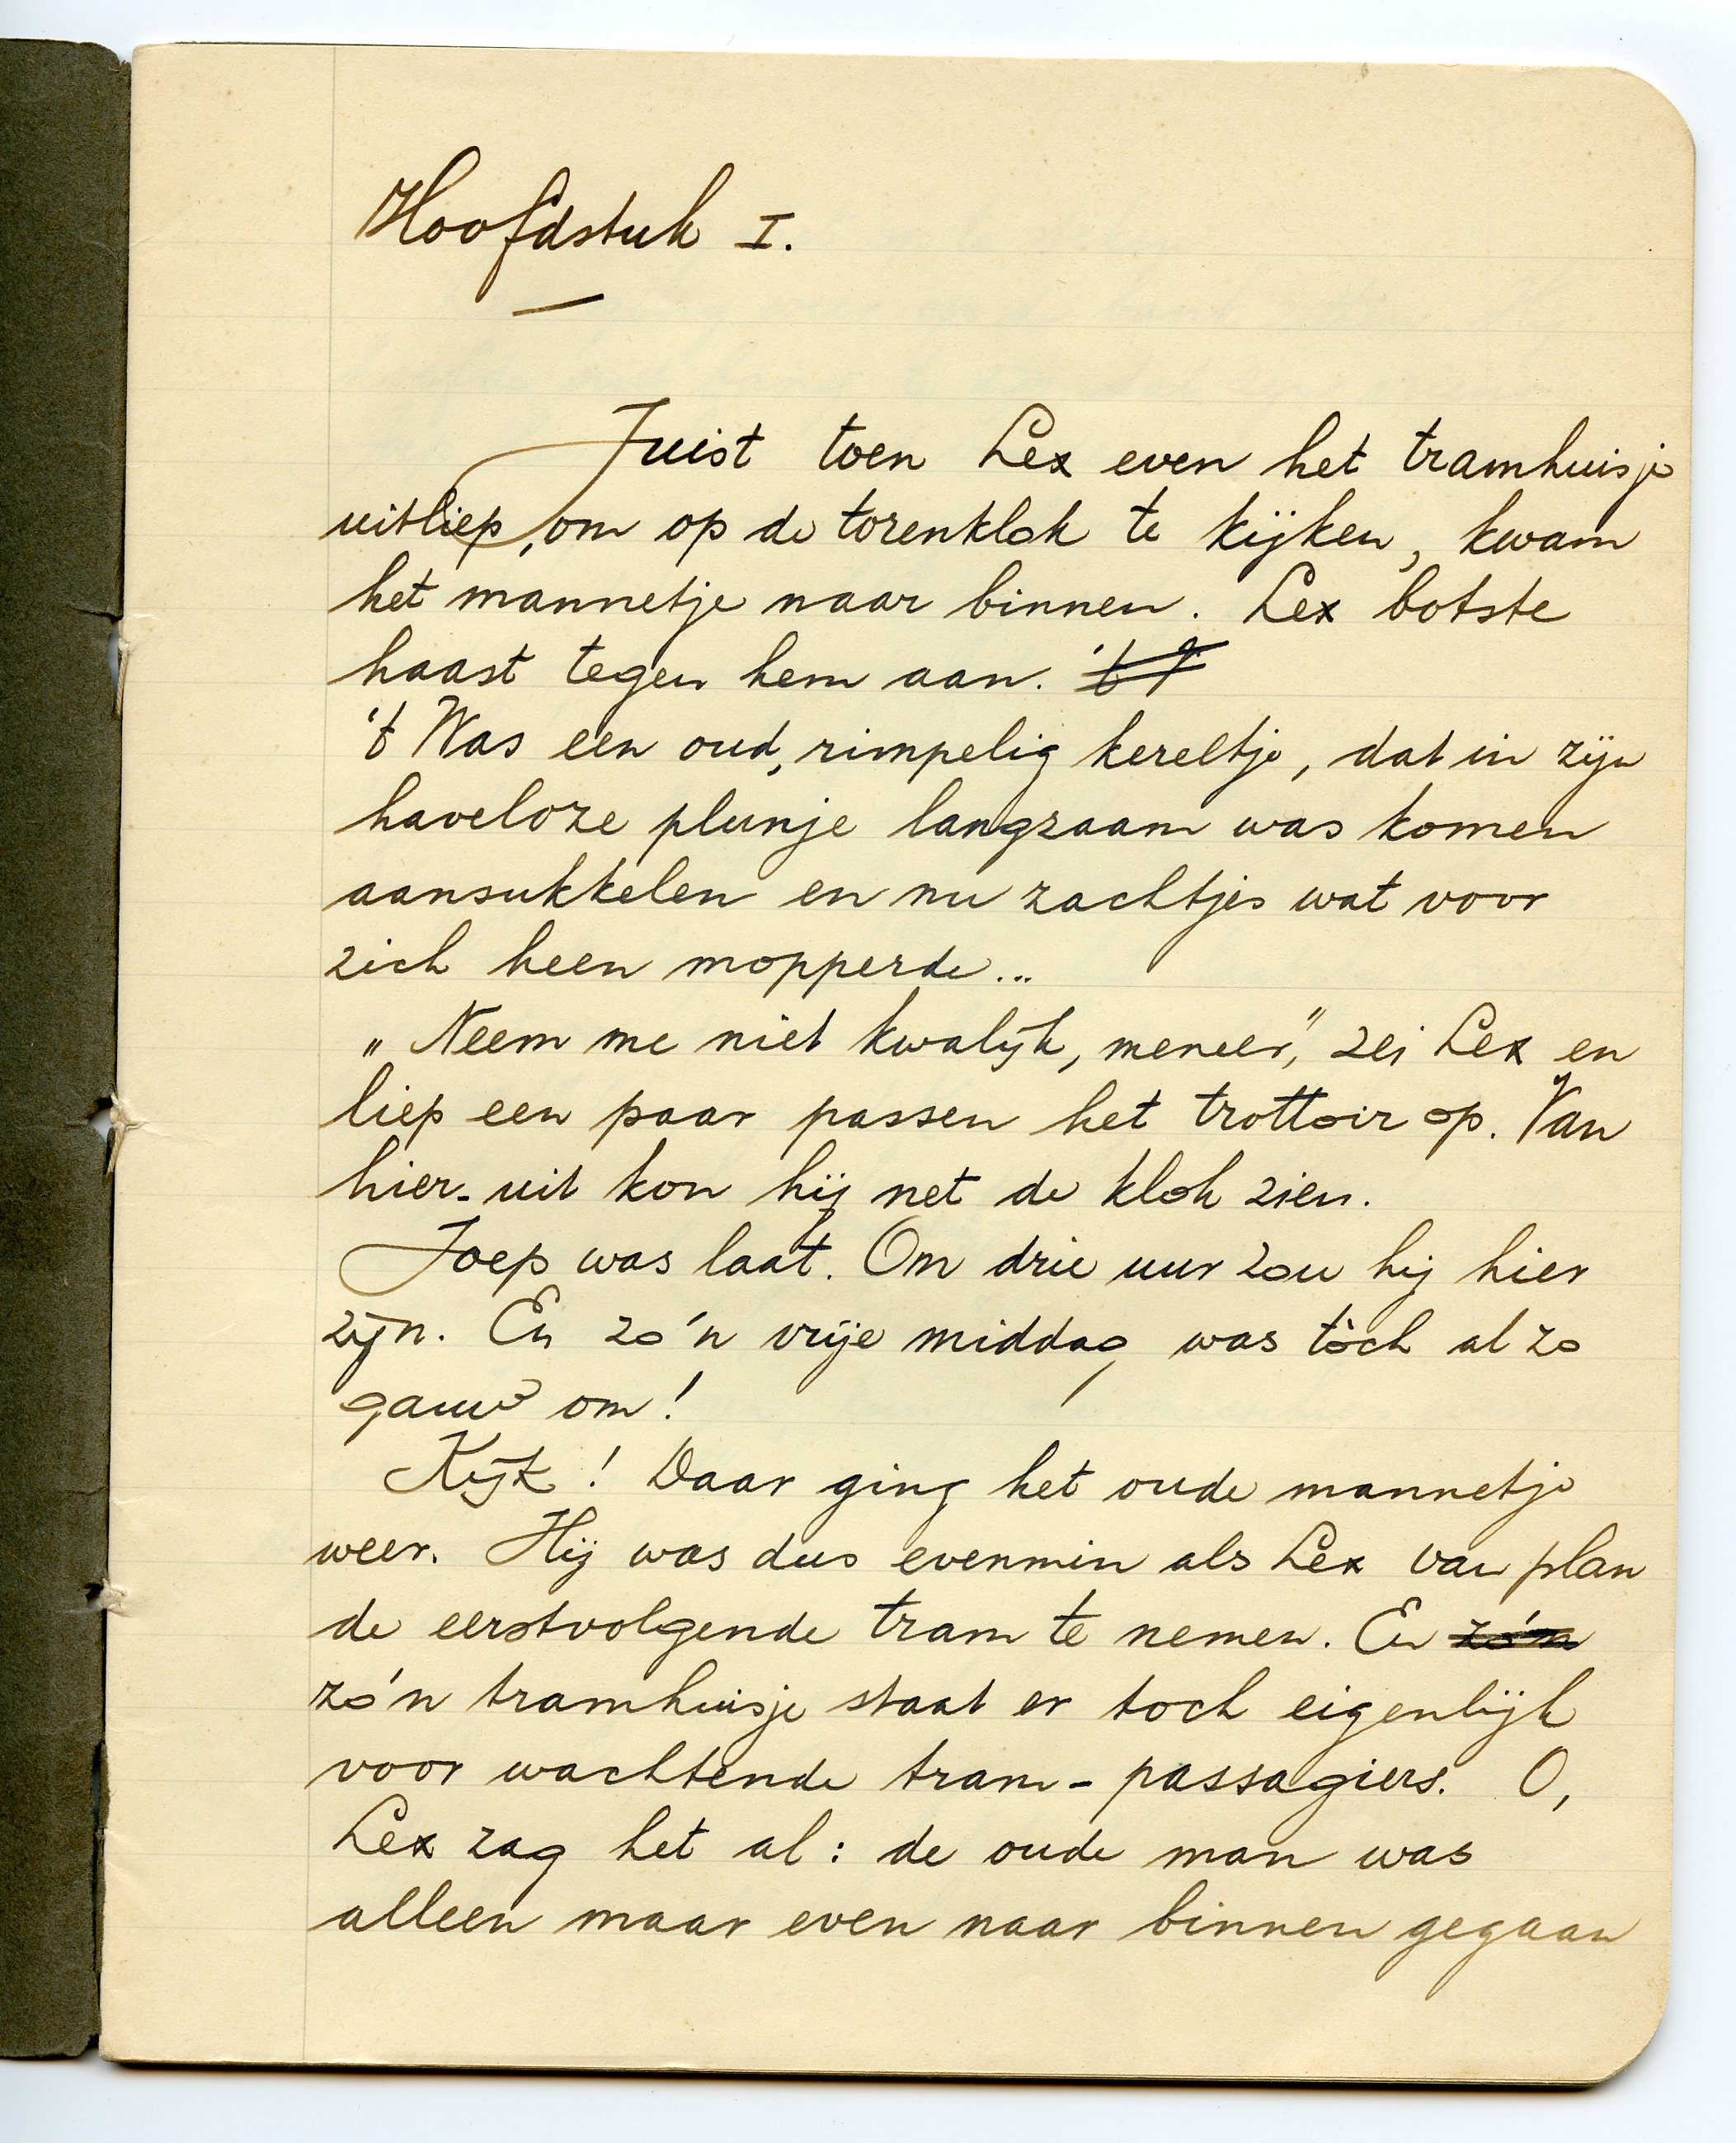 Hoofdstuk I.
Juist toen Lex even het tramhuisje
uitliep, om op de torenklok te kijken, kwam
het mannetje naar binnen. Lex botste
haast tegen hem aan.
't Was een oud, rimpelig kereltje, dat in zijn
haveloze plunje langzaam was komen
aansukkelen en nu zachtjes wat voor
zich heen mopperde...
„Neem me niet kwalijk, meneer," zei Lex en
liep een paar passen het trottoir op. Van
hier-uit kon hij net de klok zien.
Joep was laat. Om drie uur zou hij hier
zijn. En zo'n vrije middag was tòch al zo
gauw om!
Kijk! Daar ging het oude mannetje
weer. Hij was dus evenmin als Lex van plan
de eerstvolgende tram te nemen. En zo'n
zo'n tramhuisje staat er toch eigenlijk
voor wachtende tram-passagiers. O,
Lex zag het al: de oude man was
alleen maar even naar binnen gegaan